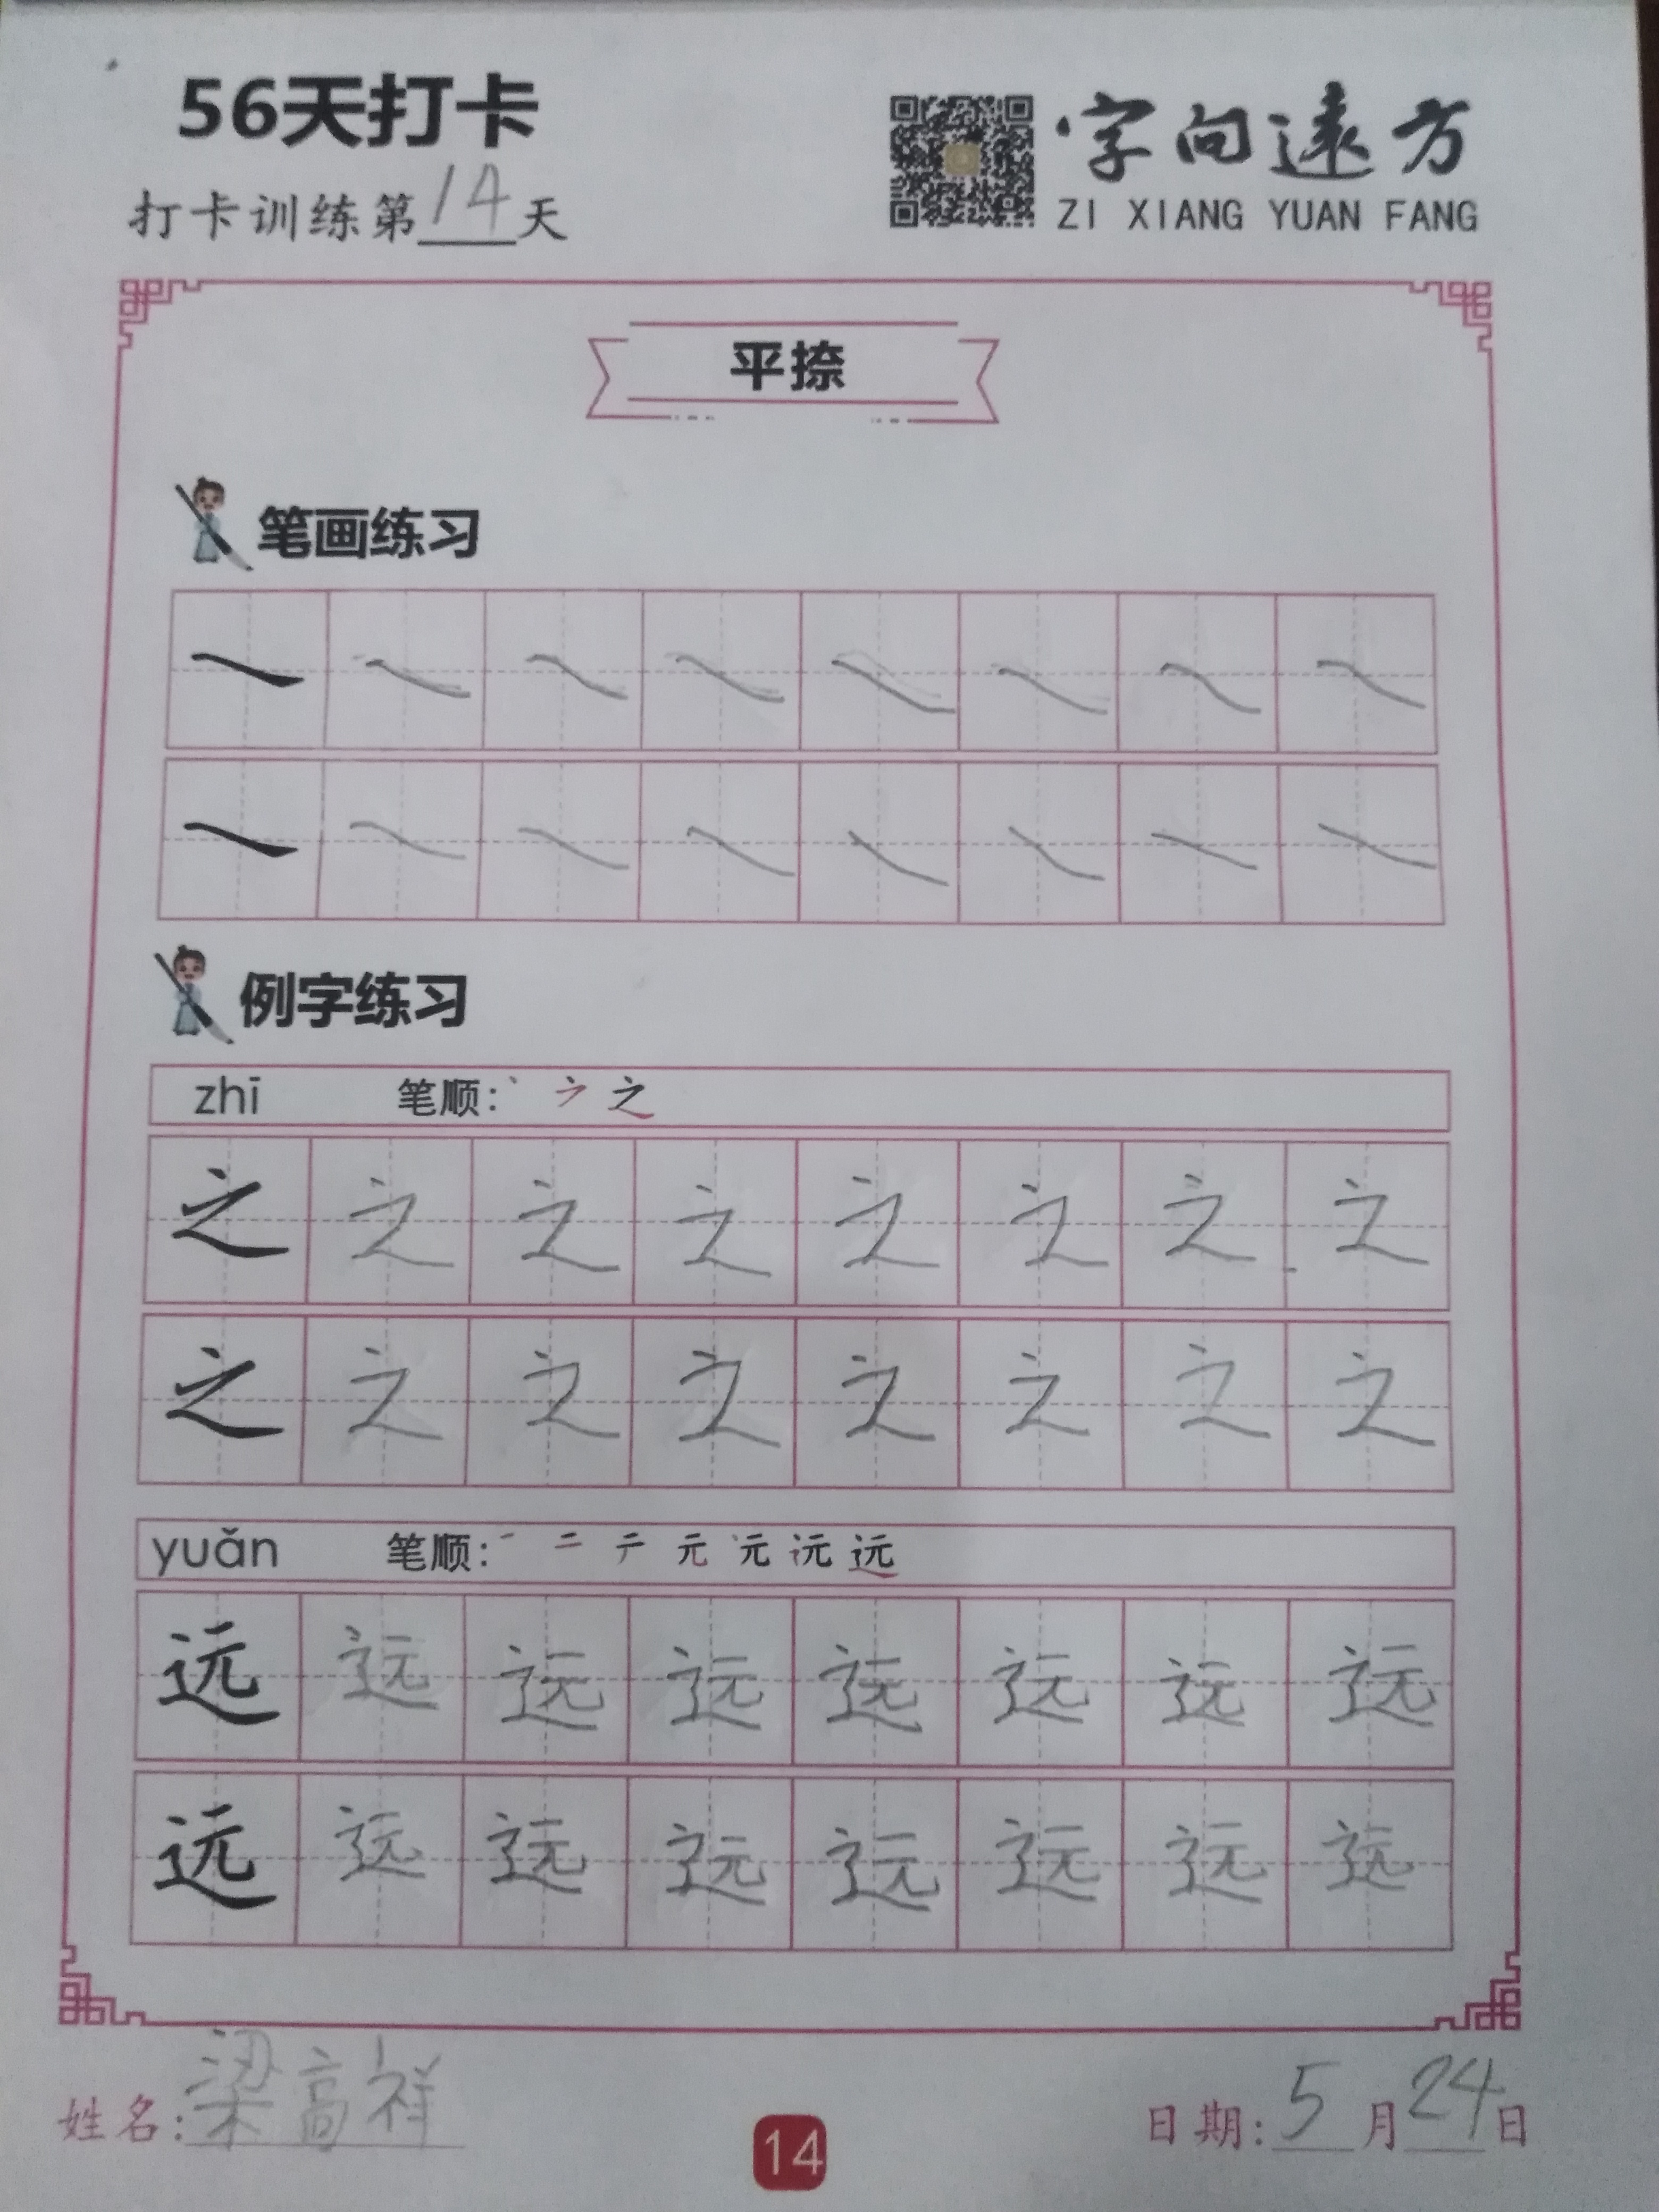 56天打卡
打卡训练第14天
字向遠方
ZI XIANG YUAN FANG
平捺
笔画练习
例字练习
zhī 笔顺: 丶 之
之 之 之 之 之 之 之 之
之 之 之 之 之 之 之 之
yuǎn 笔顺: 一 二 テ 元 远
远 远 远 远 远 远 远 远
远 远 远 远 远 远 远 远
姓名: 梁高祥
日期: 5月24日
14